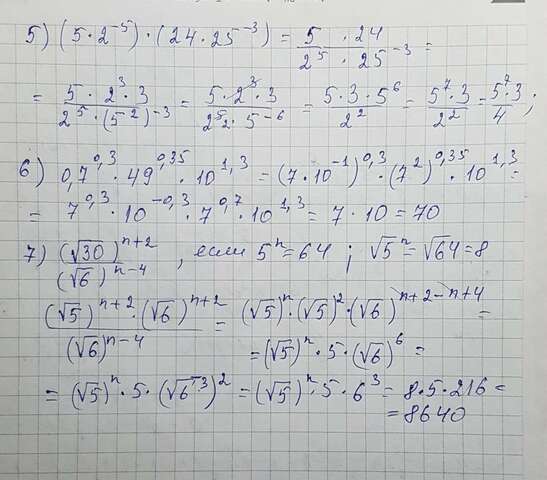 5) (5·2⁻⁵)·(24·25⁻³) = (5·24)/(2⁵·25⁻³) =
= (5·2³·3)/(2⁵·(5²)⁻³) = (5·2³·3)/(2⁵·5⁻⁶) = (5·3·5⁶)/2² = (5⁷·3)/2² = (5⁷·3)/4 ;
6) 0,7^0,3 · 49^0,35 · 10^1,3 = (7·10⁻¹)^0,3 · (7²)^0,35 · 10^1,3 =
= 7^0,3 · 10^-0,3 · 7^0,7 · 10^1,3 = 7·10 = 70
7) (√30)^(n+2)/(√6)^(n-4) , если 5ⁿ = 64 ; √5ⁿ = √64 = 8
((√5)^(n+2) · (√6)^(n+2))/(√6)^(n-4) = (√5)ⁿ·(√5)²·(√6)^(n+2-n+4) =
= (√5)ⁿ·5·(√6)⁶ =
= (√5)ⁿ·5·(√6³)² = (√5)ⁿ·5·6³ = 8·5·216 =
= 8640